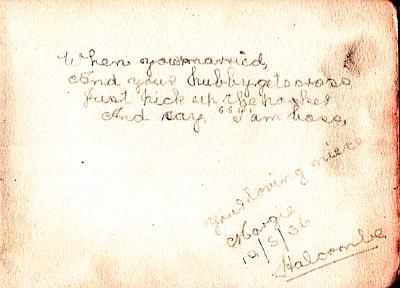 When your married,
And your hubby gets cross
Just pick up the poker
And say "I am boss,
Your loving niece
Margie
19/5/36
Halcombe